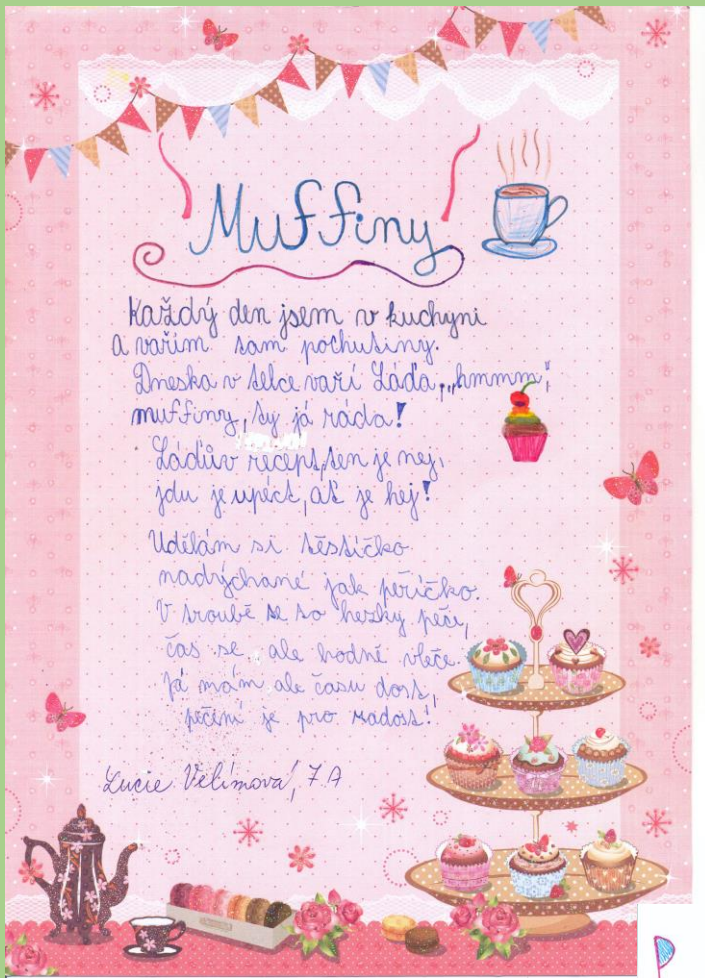 Muffiny
Každý den jsem v kuchyni
a vařím sam pochutiny.
Dneska v telce vaří Láďa, „hmmm",
muffiny, ty já ráda!
Láďův recept, ten je nej,
jdu je upéct, ať je hej!
Udělám si těstíčko
nadýchané jak peříčko.
V troubě se to hezky peče,
čas se ale hodně vleče.
Já mám ale času dost,
pečení je pro radost!
Lucie Velímová, 7.A